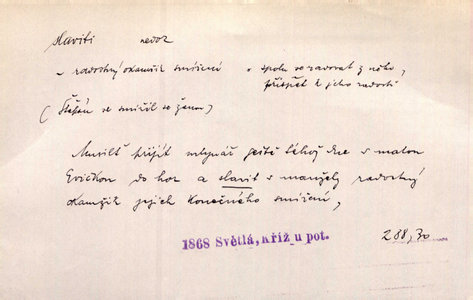 slaviti nedok
~ radostný okamžik smíření = spolu se radovat z něho,
přispět k jeho radosti
(Štěpán se smířil se ženou)
Musilť přijít mlynář ještě téhož dne s malou
Evičkou do hor a slavit s manžely radostný
okamžik jejich konečného smíření,
1868 Světlá, Kříž u pot. 288,30